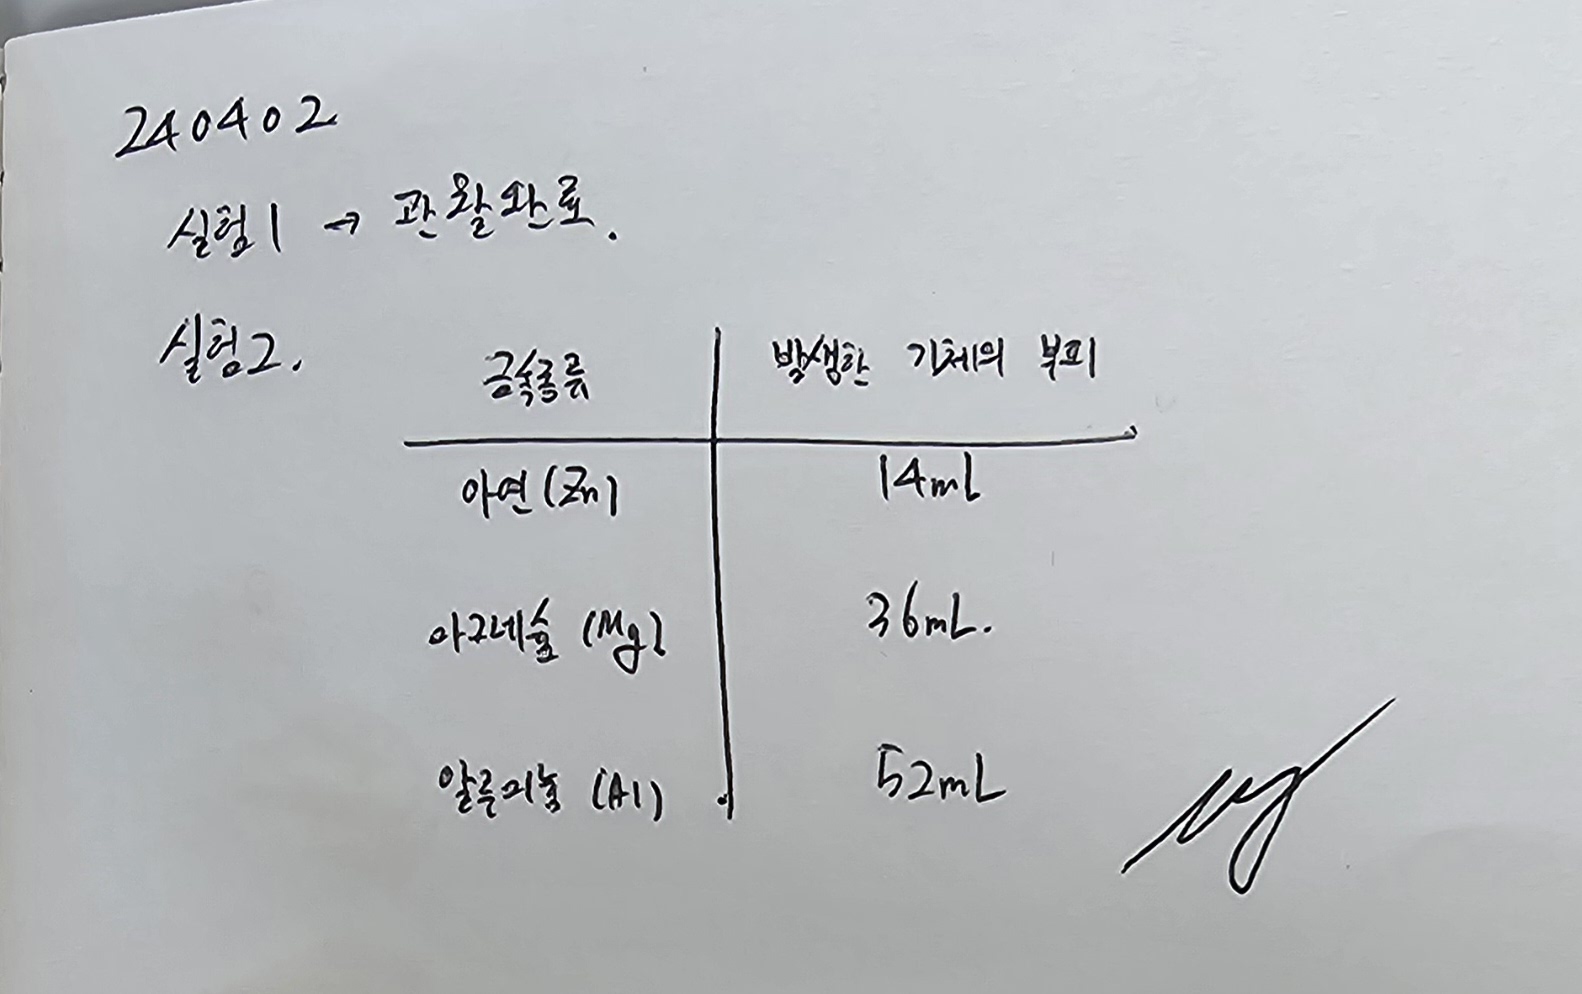 240402
실험1 → 관찰완료.
실험2.
금속종류 발생한 기체의 부피
아연(Zn) 14mL
마그네슘 (Mg) 36mL.
알루미늄 (Al) 52mL